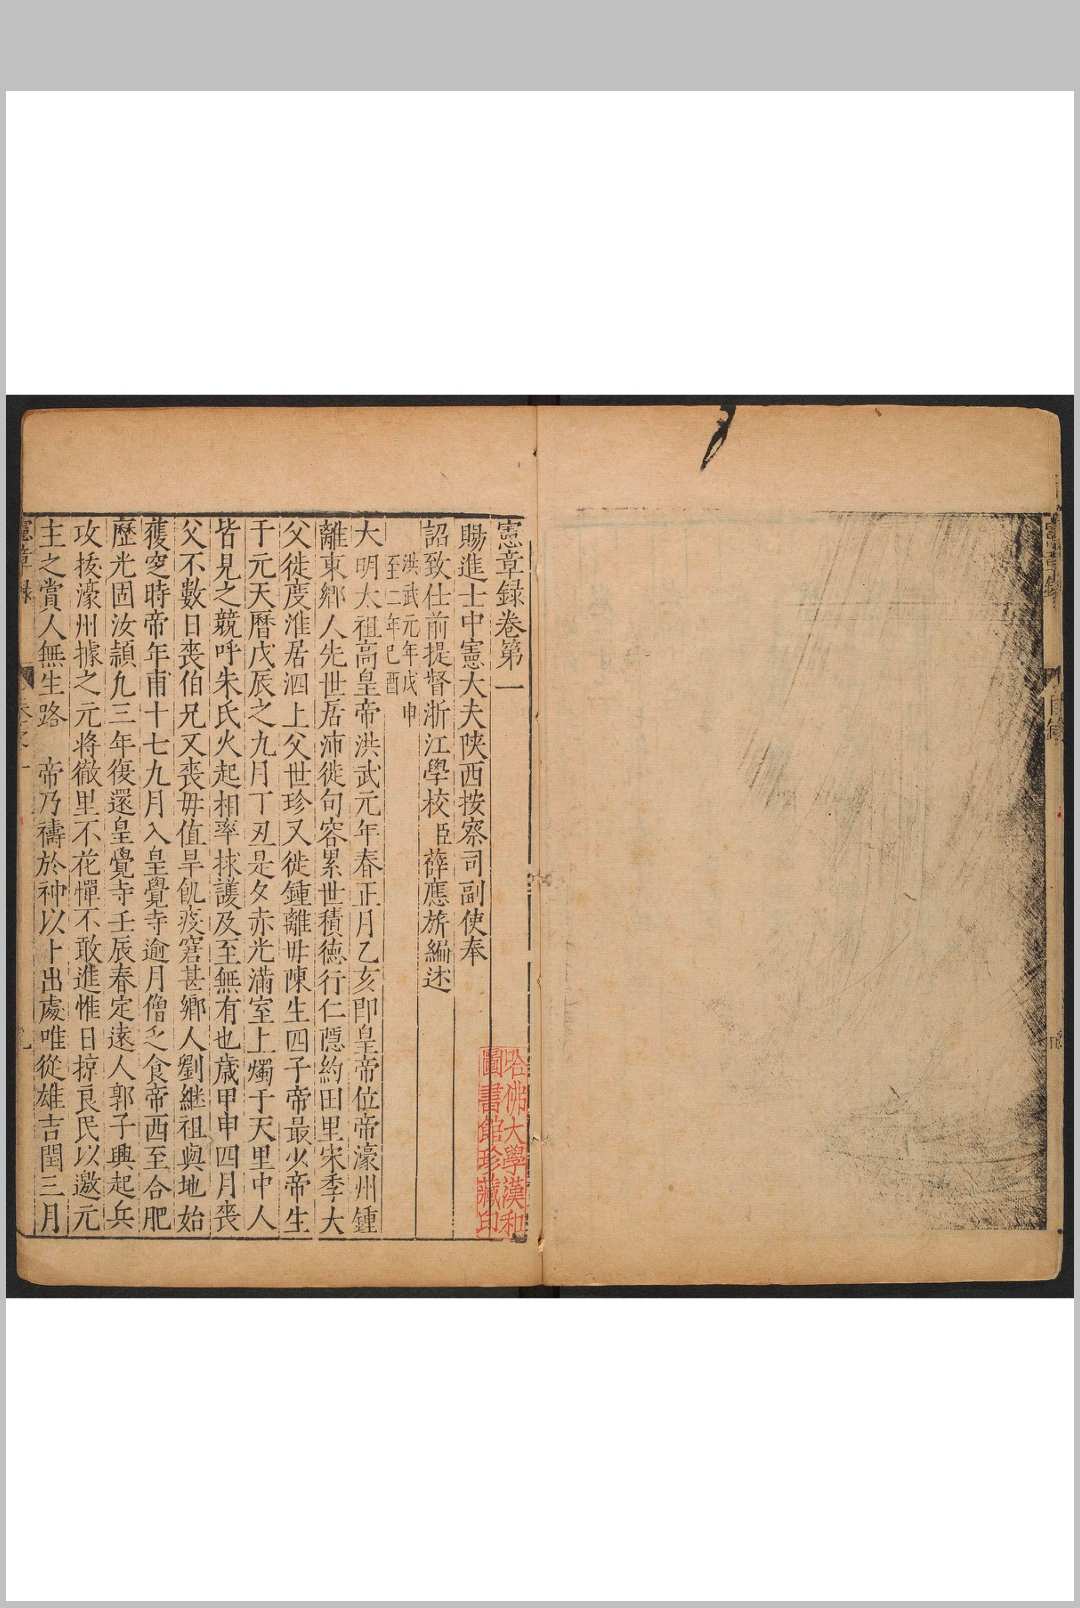 憲章録卷第一
賜進士中憲大夫陝西按察司副使奉
詔致仕前提督浙江學校臣薛應旂編述
洪武元年戊申
至二年己酉
大明太祖高皇帝洪武元年春正月乙亥即皇帝位帝濠州鍾
離東鄉人先世居沛徙句容累世積德行仁隱約田里宋季大
父徙度淮居泗上父世珍又徙鍾離毋陳生四子帝最少帝生
于元天曆戊辰之九月丁丑是夕赤光滿室上燭于天里中人
皆見之競呼朱氏火起相率捄護及至無有也歲甲申四月喪
父不數日喪伯兄又喪毋值旱飢疫窘甚鄉人劉繼祖與地始
獲窆時帝年甫十七九月入皇覺寺逾月僧乏食帝西至合肥
歷光固汝潁九三年復還皇覺寺壬辰春定遠人郭子興起兵
攻拔濠州據之元將徹里不花憚不敢進惟日掠良民以邀元
主之賞人無生路 帝乃禱於神以卜出處唯從雄吉閏三月
憲章録
卷之一
哈佛大學漢和
圖書館珍藏印
憲章錄
目録